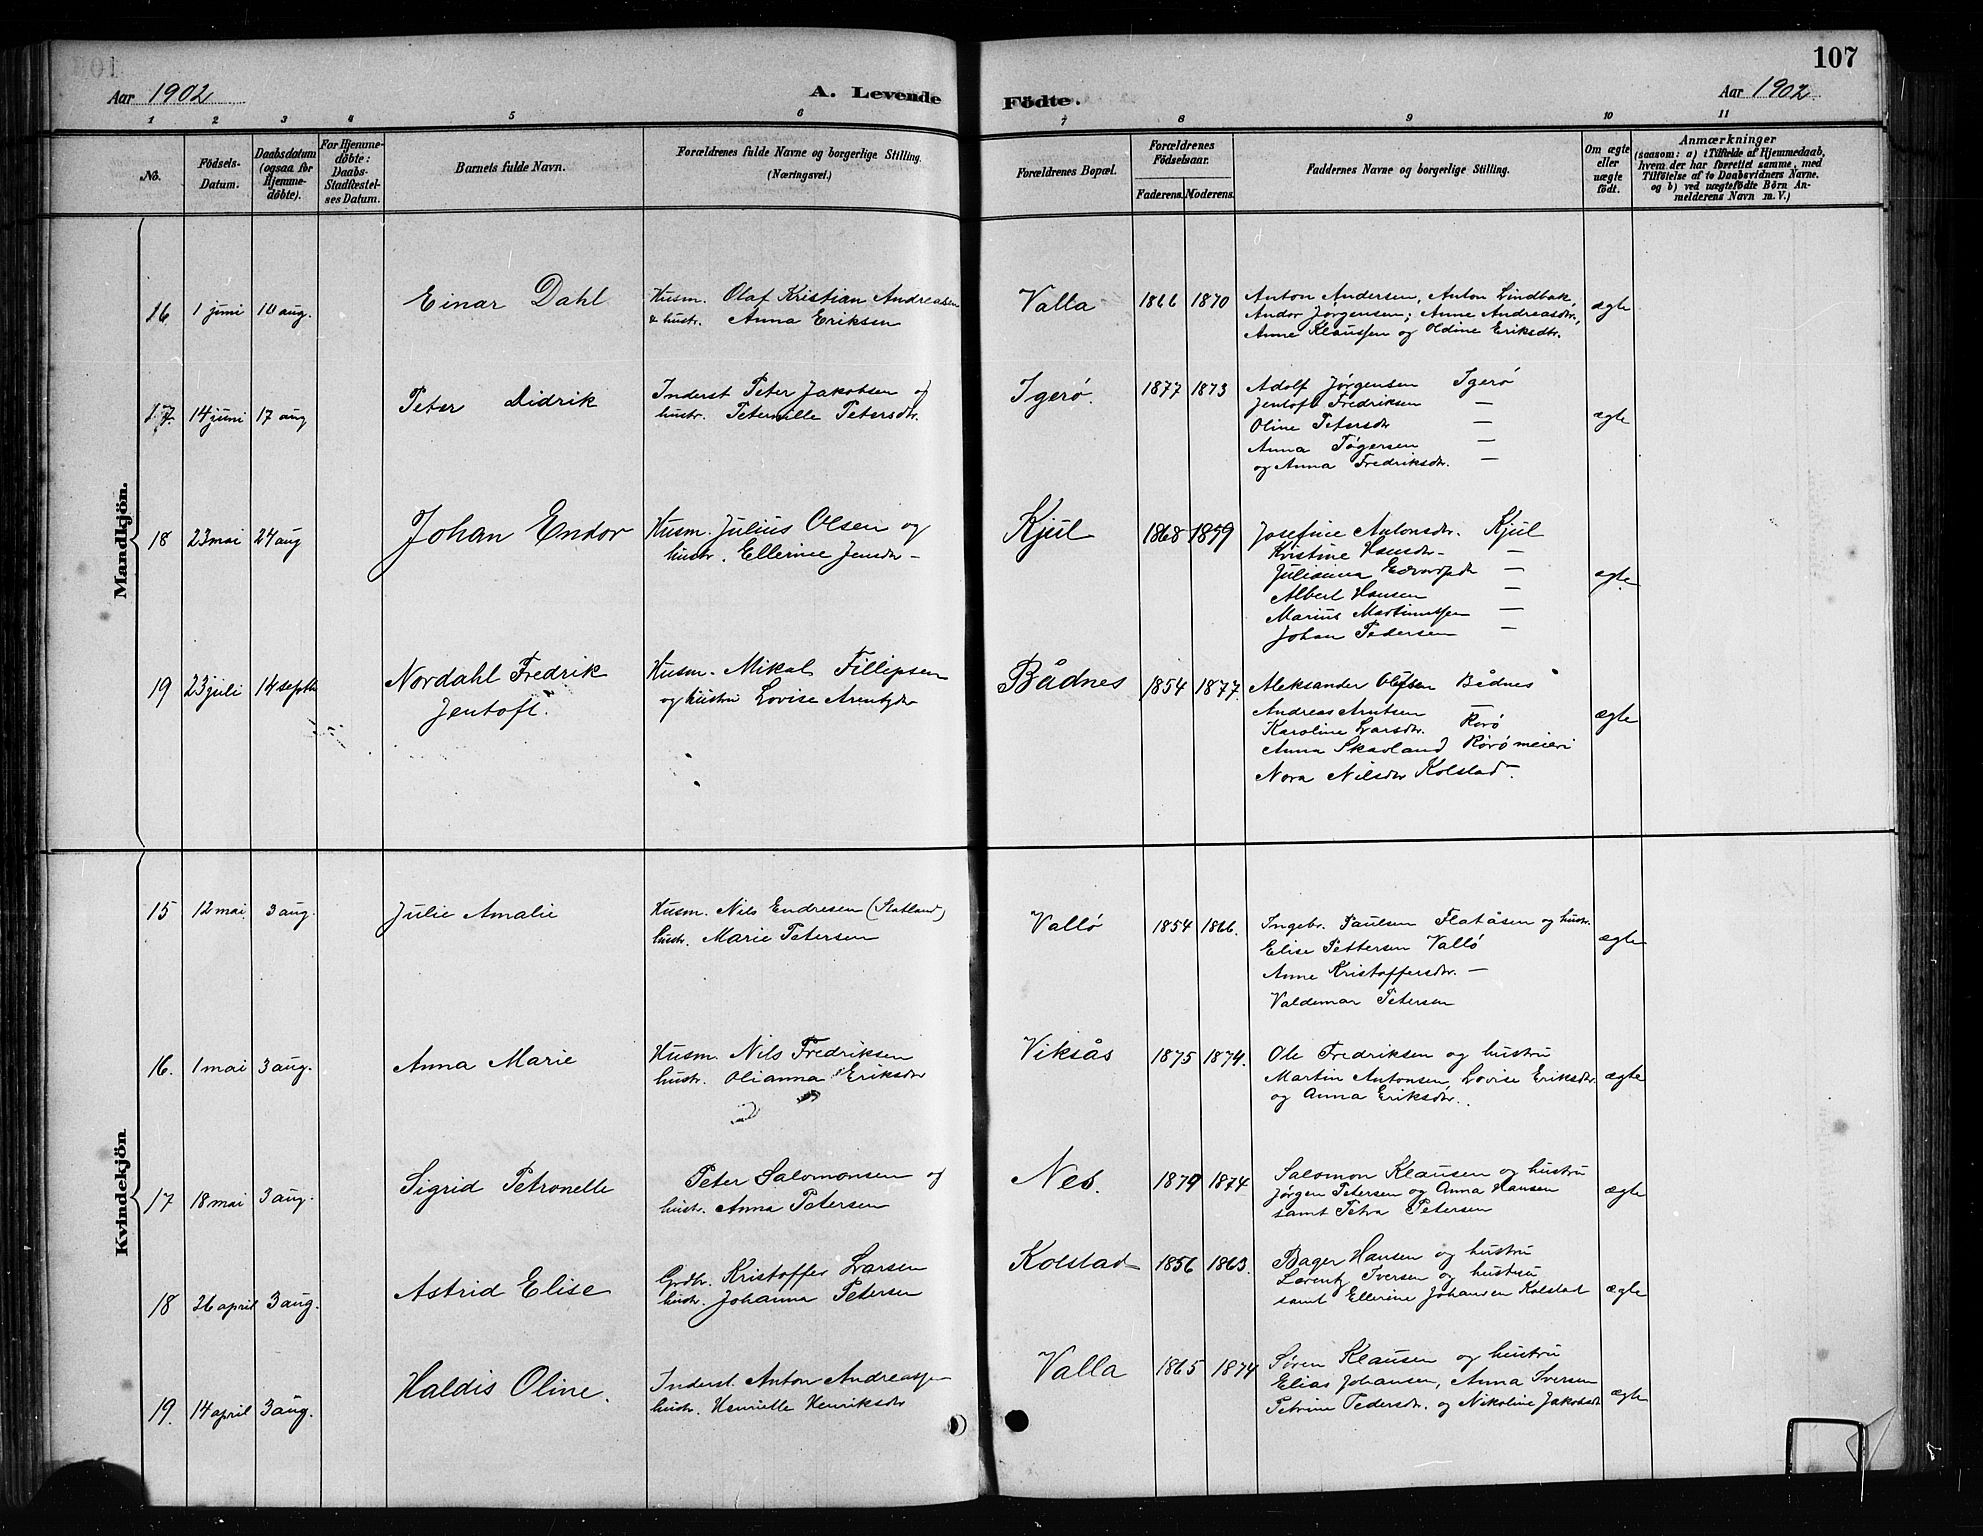 107
Aar 1902 A. Levende Födte. Aar 1902
1 2 3 4 5 6 7 8 9 10 11
No.
Födsels-Datum.
Daabsdatum (ogsaa for Hjemme-döbte).
For Hjemme-döbte: Daabs-Stadfæstel-ses Datum.
Barnets fulde Navn.
Forældrenes fulde Navne og borgerlige Stilling. (Næringsvei.)
Forældrenes Bopæl.
Forældrenes Födselsaar.
Faderens. Moderens.
Faddernes Navne og borgerlige Stilling.
Om ægte eller uægte födt.
Anmærkninger
(saasom: a) i Tilfælde af Hjemmedaab,
hvem der har forrettet samme, med
Tilföielse af to Daabsvidners Navne.
og b) ved uægtefödte Börn An-
melderens Navn m. V.)
Mandkjön.
16 1 juni 10 aug. Einar Dahl Husm. Olaf Kristian Andreassen Valla 1866 1870 Anton Andersen, Anton Lindbak, ægte
& hustr. Anna Eriksen Andor Jørgensen; Anne Andreasdtr.,
Anne Klaussen og Oldine Eriksdtr.
17. 14 juni 17 aug Peter Didrik Inderst Peter Jakobsen og Igerø. 1877 1873 Adolf Jørgensen Igerø ægte
hustr. Peternille Petersdtr. Jentoft Fredriksen —
Oline Petersdtr —
Anna Tøgersen —
og Anna Fredriksdtr. —
18 23 mai 24 aug Johan Endor Husm. Julius Olsen og Kjul 1868 1859 Josefine Antonsdtr. Kjul ægte
hustr. Ellerine Jensdtr – Kristine Hansdtr. —
Julianna Edvardsdtr —
Albert Hansen —
Marius Martinussen —
Johan Pedersen —
19 23 juli 14 septb Nordahl Fredrik Husm. Mikal Fillipsen Bådnes 1854 1877. Aleksander Olsen Bådnes ægte
Jentoft. og hustru Lovise Arentsdtr Andreas Arntsen —
Karoline Larsdtr. Rørø
Anna Skavland Rørø meieri
Nora Nilsdtr Kolstad.
Kvindekjön
15 12 mai 3 aug. Julie Amalie Husm. Nils Endresen (Statland) Vallø 1854 1866. Ingebr. Paulsen Flatåsen og hustr. ægte
hustr. Marie Petersen Elise Pettersen Vallø
Anne Kristoffersdtr. —
Valdemar Petersen
16. 1 mai 3 aug. Anna Marie Husm. Nils Fredriksen Viksås 1875 1874. Ole Fredriksen og hustru ægte
hustr. Olianna Eriksdtr Martin Antonsen, Lovise Eriksdtr.
og Anna Eriksdtr.
17 18 mai 3 aug. Sigrid Petronelle Peter Salomonsen og Nes. 1879 1874 Salomon Klausen og hustru ægte
hustr. Anna Petersen Jørgen Petersen og Anna Hansen
samt Petra Petersen
18 26 april 3 aug. Astrid Elise Grdbr. Kristoffer Larsen Kolstad 1856 1863. Bager Hansen og hustru ægte
hustr. Johanna Petersen Lorentz Iversen og hustru
samt Ellerine Johansen Kolstad
19. 14 april 3 aug. Haldis Oline. Inderst. Anton Andreassen Valla 1865 1874 Søren Klausen og hustru ægte
hustr. Henriette Henriksdtr Elias Johansen, Anna Iversen
Petrine Pedersdtr. og Nikoline Jakobsdtr